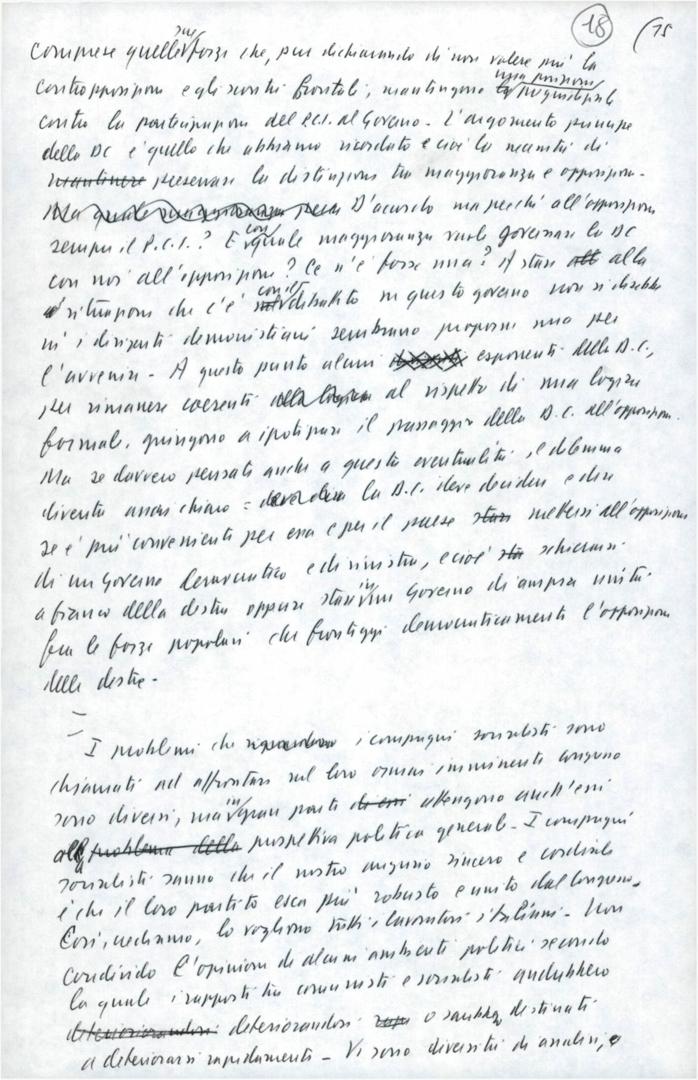 18 15
sue
comprese quelle forze che, pur dichiarando di non volere più la
una posizione
contrapposizione e gli scontri frontali, mantengono pregiudiziale
contro la partecipazione del P.C.I. al Governo - L'argomento principe
della DC è quello che abbiamo ricordato e cioè la necessità di
mantenere preservare la distinzione tra maggioranza e opposizione -
Ma quale maggioranza D'accordo ma perché all'opposizione
con
sempre il P.C.I.? E quale maggioranza vuole governare la DC
con noi all'opposizione? Ce n'è forse una? A stare alla
situazione che c'è e al dibattito in questo governo non si direbbe
né i dirigenti democristiani sembrano proporne una per
l'avvenire - A questo punto alcuni esponenti della D.C.,
per rimanere coerenti alla logica al rispetto di una logica
formale, giungono a ipotizzare il passaggio della D.C. all'opposizione.
Ma se davvero pensate anche a questa eventualità, il dilemma
diventa ancor chiaro: la D.C. deve decidere e dire
se è più conveniente per essa e per il paese stare mettersi all'opposizione
di un governo democratico e di sinistra, e cioè sta schierarsi
in
a fianco della destra oppure stare un Governo di ampia unità
fra le forze popolari che fronteggi democraticamente l'opposizione
delle destre -
=
I problemi che riguardano i compagni socialisti sono
chiamati ad affrontare nel loro ormai imminente congresso
in
sono diversi, ma gran parte di essi attengono anch'essi
alla problema della prospettiva politica generale - I compagni
socialisti sanno che il nostro augurio sincero e cordiale
è che il loro partito esca più robusto e unito dal congresso.
Così, crediamo, lo vogliono tutti i lavoratori italiani - Non
condivido l'opinione di alcuni ambienti politici secondo
la quale i rapporti tra comunisti e socialisti andrebbero
deteriorandosi deteriorandosi o sarebbero destinati
a deteriorarsi rapidamente - Vi sono diversità di analisi, e